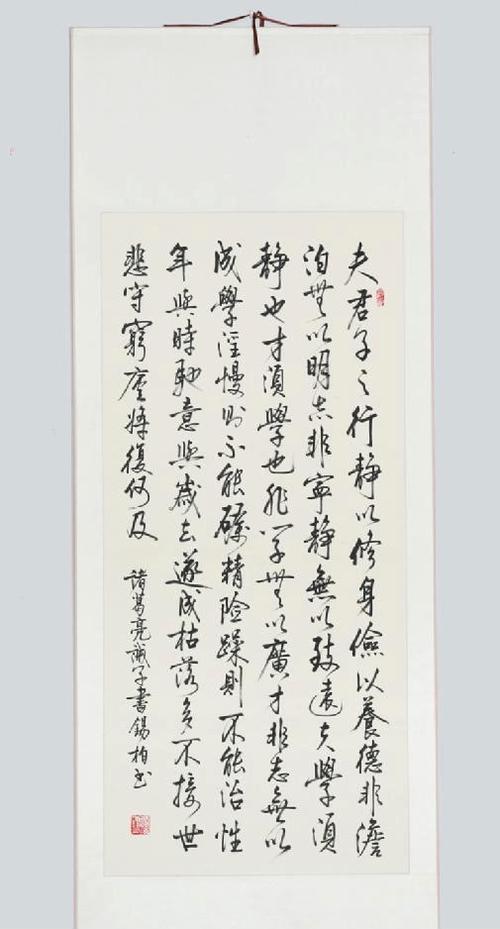 夫君子之行静以修身儉以養德非澹
泊無以明志非寧静無以致遠夫學須
静也才須學也非学無以廣才非志無以
成學淫慢則不能礪精險躁則不能治性
年與時馳意與歲去遂成枯落多不接世
悲守窮廬將復何及
諸葛亮誡子書錫柏书